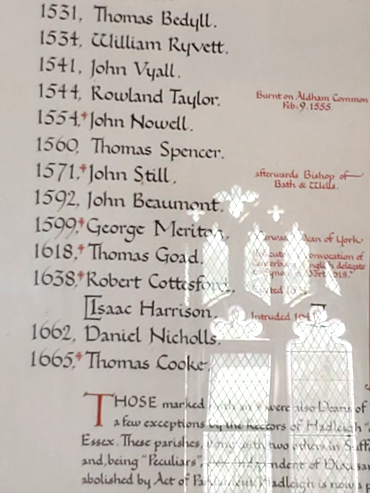 1531, Thomas Bedyll.
1534, William Ryvett.
1541, John Vyall.
1544, Rowland Taylor. Burnt on Aldham Common
Feb: 9. 1555.
1554,* John Nowell.
1560, Thomas Spencer.
1571,* John Still, afterwards Bishop of
Bath & Wells.
1592, John Beaumont.
1599,* George Meriton, Dean of York
1618,* Thomas Goad. Convocation of
English delegate
1638,* Robert Cottesford,
[Isaac Harrison, Intruded
1662, Daniel Nicholls.
1665,* Thomas Cooke
THOSE marked were also Deans of
a few exceptions by the Rectors of Hadleigh
Essex. These parishes, along with two others in
and, being "Peculiars", independent of
abolished by Act of Parliament Hadleigh is now